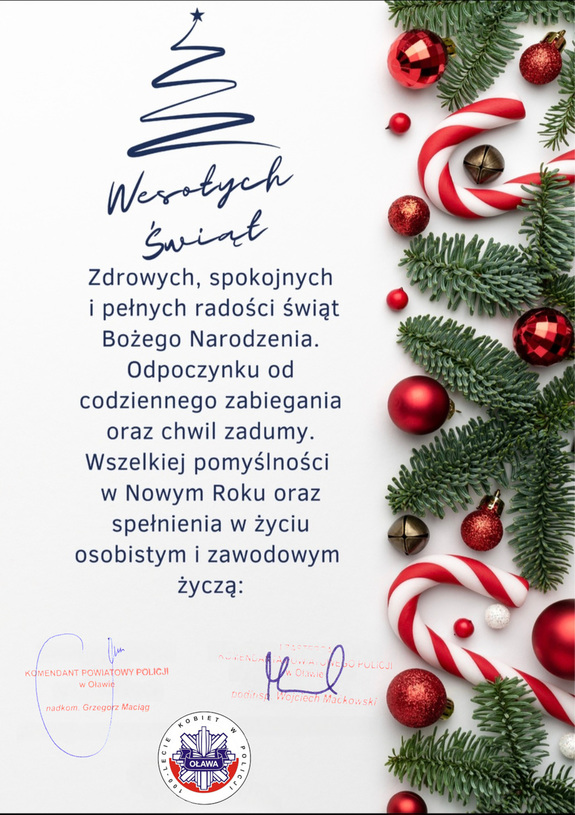 Wesołych
Świąt
Zdrowych, spokojnych
i pełnych radości świąt
Bożego Narodzenia.
Odpoczynku od
codziennego zabiegania
oraz chwil zadumy.
Wszelkiej pomyślności
w Nowym Roku oraz
spełnienia w życiu
osobistym i zawodowym
życzą:
KOMENDANT POWIATOWY POLICJI
w Oławie
nadkom. Grzegorz Maciąg
POWIATOWEGO POLICJI
w Oławie
podinsp. Wojciech Mackowski
100-LECIE KOBIET W POLICJI
OŁAWA